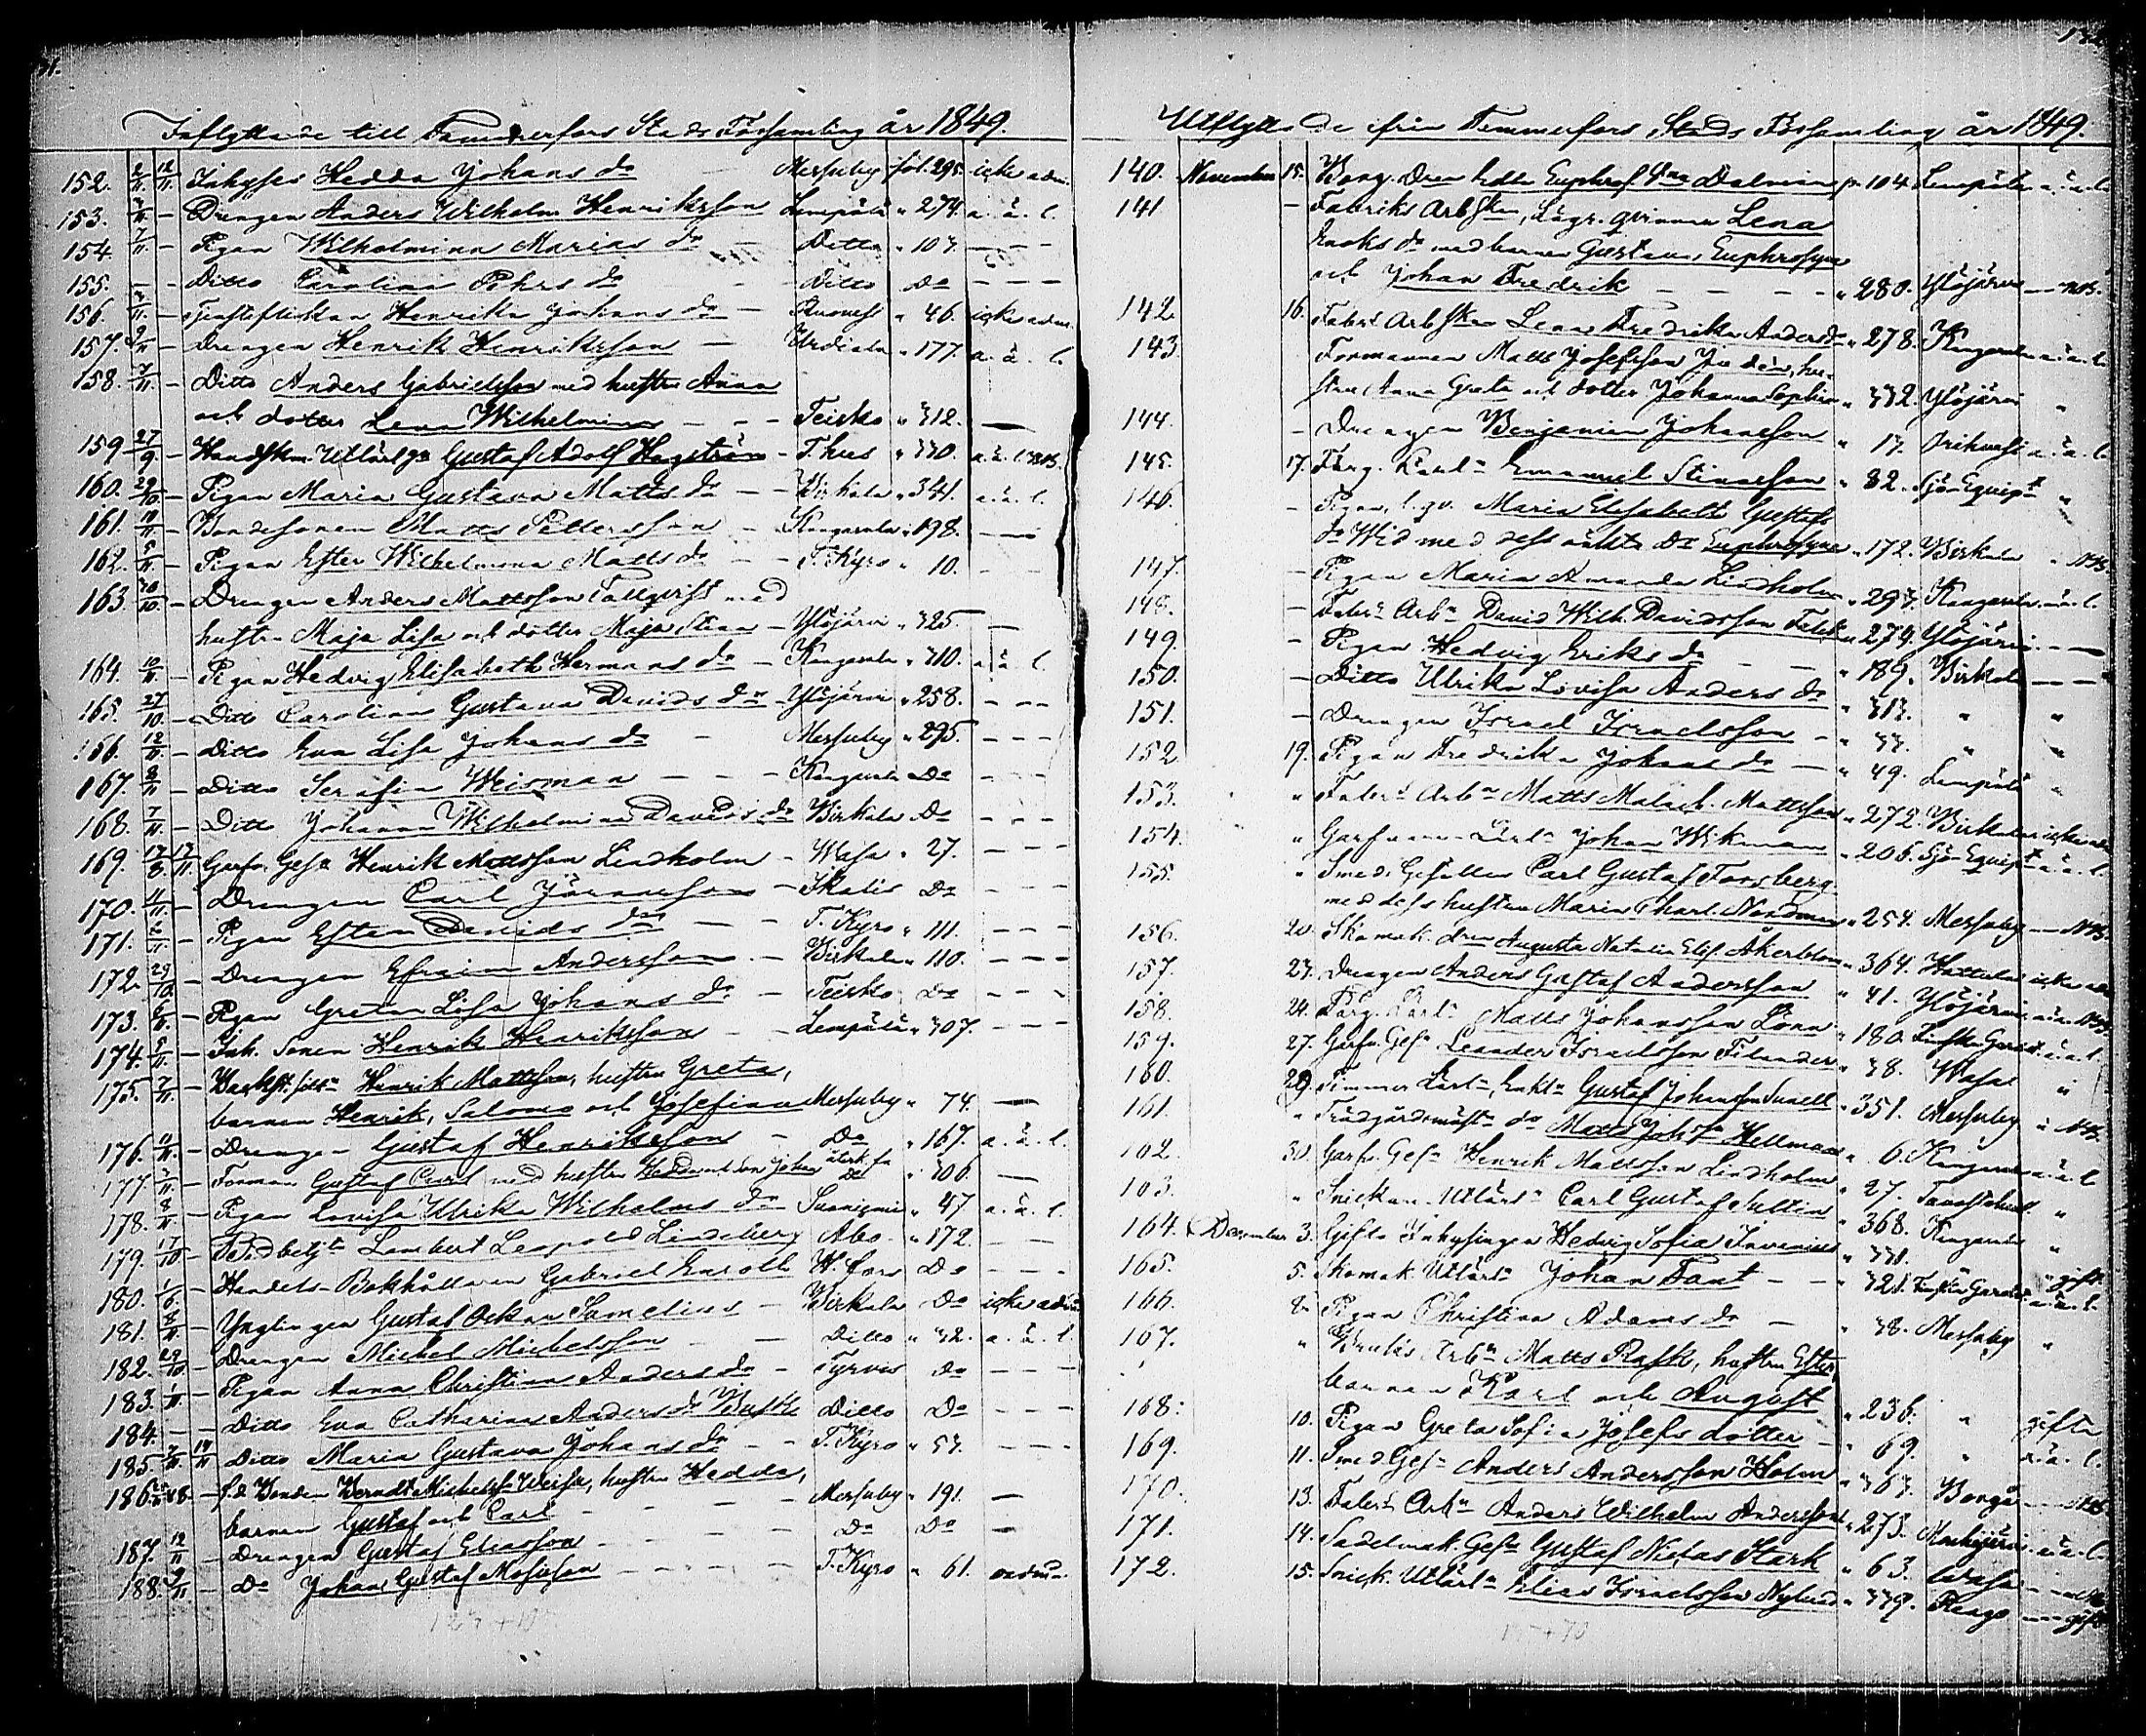 Inflyttade till Tammerfors Stads Församling år 1849.
152. 2/11 12/11 Inhyses Hedda Johans dr Messuby fol. 295. icke adm.
153. 3/11 — Drengen Anders Wilhelm Henriksson Lempälä " 274. a. ä. l.
154. 7/11 — Pigan Wilhelmina Marias dr — Ditto " 103. — — —
155. — — Ditto Carolina Pehrs dr — — Ditto Do — — —
156. — Henrika Johans dr — Ruovesi " 46. icke adm.
157. 2/11 — Drengen Henrik Henriksson — Urdiala " 177. a. ä. l.
158. 7/11 — Ditto Anders Gabrielsson med hustru Anna
och dotter Lena Wilhelmina — — — Teisko " 312. —
159. 27/9 — Gustaf Adolf Hagström — T:hus " 330. a. ä. l.
160. 29/10 — Pigan Maria Gustava Matts dr — — Birkala " 341. a. ä. l.
161. 10/11 — Bondesonen Matts Pettersson — Kangasala " 198. — —
162. 5/11 — Pigan Ester Wilhelmina Matts dr — — T. Kyro " 10. — —
163. 30/10 — Drengen Anders Mattsson Tallqvist med
hustru Maja Lisa och dotter Maja Stina — Ylöjärvi " 325. —
164. 10/11 — Pigan Hedvig Elisabeth Hermans dr — Kangasala " 310. a. ä. l.
165. 27/10 — Ditto Carolina Gustava Davids dr — Ylöjärvi " 258. — — —
166. 12/11 — Ditto Eva Lisa Johans dr — Messuby " 295. — — —
167. 8/11 — Ditto Serafia Weisman — — — Kangasala Do — — —
168. 7/11 — Ditto Johanna Wilhelmina Davids dr Birkala Do — — —
169. 17/8 17/11 Garfv. Ges. Henrik Mattsson Lindholm — Wasa " 27. — — —
170. 11/11 — Drengen Carl — Ikalis Do — — —
171. 2/11 — Pigan Ester Davids dr — — T. Kyro " 111. — — —
172. 29/10 — Drengen Efraim Andersson — — Birkala " 110. — — —
173. 6/11 — Pigan Greta Lisa Johans dr — Teisko Do — — —
174. 5/11 — Inh. Sonen Henrik Henriksson — — Lempälä " 307. — — —
175. 7/11 — Henrik Mattsson, hustru Greta,
barnen Henrik, Salomo och Josefina Messuby " 74. —
176. 11/11 — Drengen Gustaf Henriksson — Do " 167. a. ä. l.
177. 3/11 — Gustaf med hustru Hedda och Son Johan Do " 306. —
178. 8/11 — Pigan Lovisa Ulrika Wilhelms dr Suoniemi " 47 a. ä. l.
179. 17/10 — Lambert Leopold Lindeberg Åbo " 172. — —
180. 1/6 — Handels-Bokhållaren Gabriel Enroth H:fors Do — — —
181. 8/11 — Ynglingen Gustaf Oskar Samelius — Birkala Do icke adm.
182. 29/10 — Drengen Michel Michelsson — — Ditto " 32. a. ä. l.
183. 1/11 — Pigan Anna Christina Anders dr — Tyrvis Do — — —
184. — — Ditto Eva Catharina Anders dr Ditto Do — — —
185. 14/11 Ditto Maria Gustava Johans dr — — T. Kyro " 53. — — —
186. — f.d. Bonden hustru Hedda,
barnen Gustaf och Carl — — — Messuby " 191. —
187. 12/11 — Drengen Gustaf Eliasson — — — Do Do —
188. 9/11 — Do Johan Gustaf — — — T. Kyro " 61.
Utflyttade ifrån Tammerfors Stads Församling år 1849.
140. November 15. Lempälä a. ä. l.
141 — Fabriks Arbskan, Lena
Enoks dr med barnen Gustava, Euphrosyne
och Johan Fredrik — — — — " 280. Ylöjärvi — —
142. 16. Fabr. Arbskan Lena Fredrika Anders dr " 278. Kangasala a. ä. l.
143. Formannen Matts Josefsson Judén, hu-
stru Anna Greta och dotter Johanna Sophia " 332. Ylöjärvi "
144. — Drengen Benjamin Johansson " 17. Orihvesi a. ä. l.
145. 17. Färg. Lärl. Emanuel " 82. Sjö-Equip. "
146. — Pigan, Maria Elisabeth Gustafs
dr med dess oäkta dr Euphrosyne " 172. Birkala "
147. — Pigan Maria Amanda Lindholm " 293. Kangasala a. ä. l.
148. — Fabr. Arb. David Wilh. Davidsson " 279. Ylöjärvi — —
149. — Pigan Hedvig Eriks dr — — " 189. Birkala — — "
150. — Ditto Ulrika Lovisa Anders dr " 313. " "
151. — Drengen Israel Israelsson — " 33. " "
152 19. Pigan Fredrika Johans dr — " 49. Lempälä "
153. " Fabr. Arb. Matts Mattsson " 272. Birkala icke adm.
154. " Garfvare-Lärl. Johan Wikman " 206. Sjö-Equip. a. ä. l.
155. " Smeds Gesällen Carl Gustaf Forsberg
med dess hustru Maria Charl. Nordman " 254. Messuby —
156. 20. Skomak. Augusta Natalia Elis. Åkerblom " 364. Hattula icke adm
157. 23. Drengen Anders Gustaf Andersson " 41. Ylöjärvi a. ä. l.
158. 24. Färg. Lärl. Matts Johansson Lönn " 180. a. ä. l.
159. 27. Garfv. Ges. Leander Israelsson Filander " 38. Wasa "
160. 29. Timmer Lärl. Gustaf Johansson Sunell " 351. Messuby "
161. " Trädgårdsmäst. Matts Hellman " 6. Kangasala a. ä. l
162. 30. Garfv. Ges. Henrik Mattsson Lindholm " 27. Tavastehus "
163. " Snickare Utlärl. Carl Gustaf Sultin " 368. Kangasala "
164. December 3. Gifta Inhysingen Hedvig Sofia " 331. " gift
165. 5. Skomak. Utlärl. Johan Fant — — " 321. a. ä. l.
166. 8. Pigan Christina Adams dr — " 38. Messuby "
167. " Arb. Matts Rask, hustru Ester,
barnen Karl och August " 236. " gifta
168. 10. Pigan Greta Sofia Josefs dotter — " 69. " a. ä. l.
169. 11. Smed Ges. Anders Andersson Holm " 363. Borgå — —
170. 13. Fabr. Arb. Anders Wilhelm Andersson " 275. a. ä. l.
171. 14. Sadelmak. Ges. Gustaf Niclas Stark " 63. Wasa — —
172. 15. Snick. Utlärl. Elias Israelsson Nylund " 339. — — gift